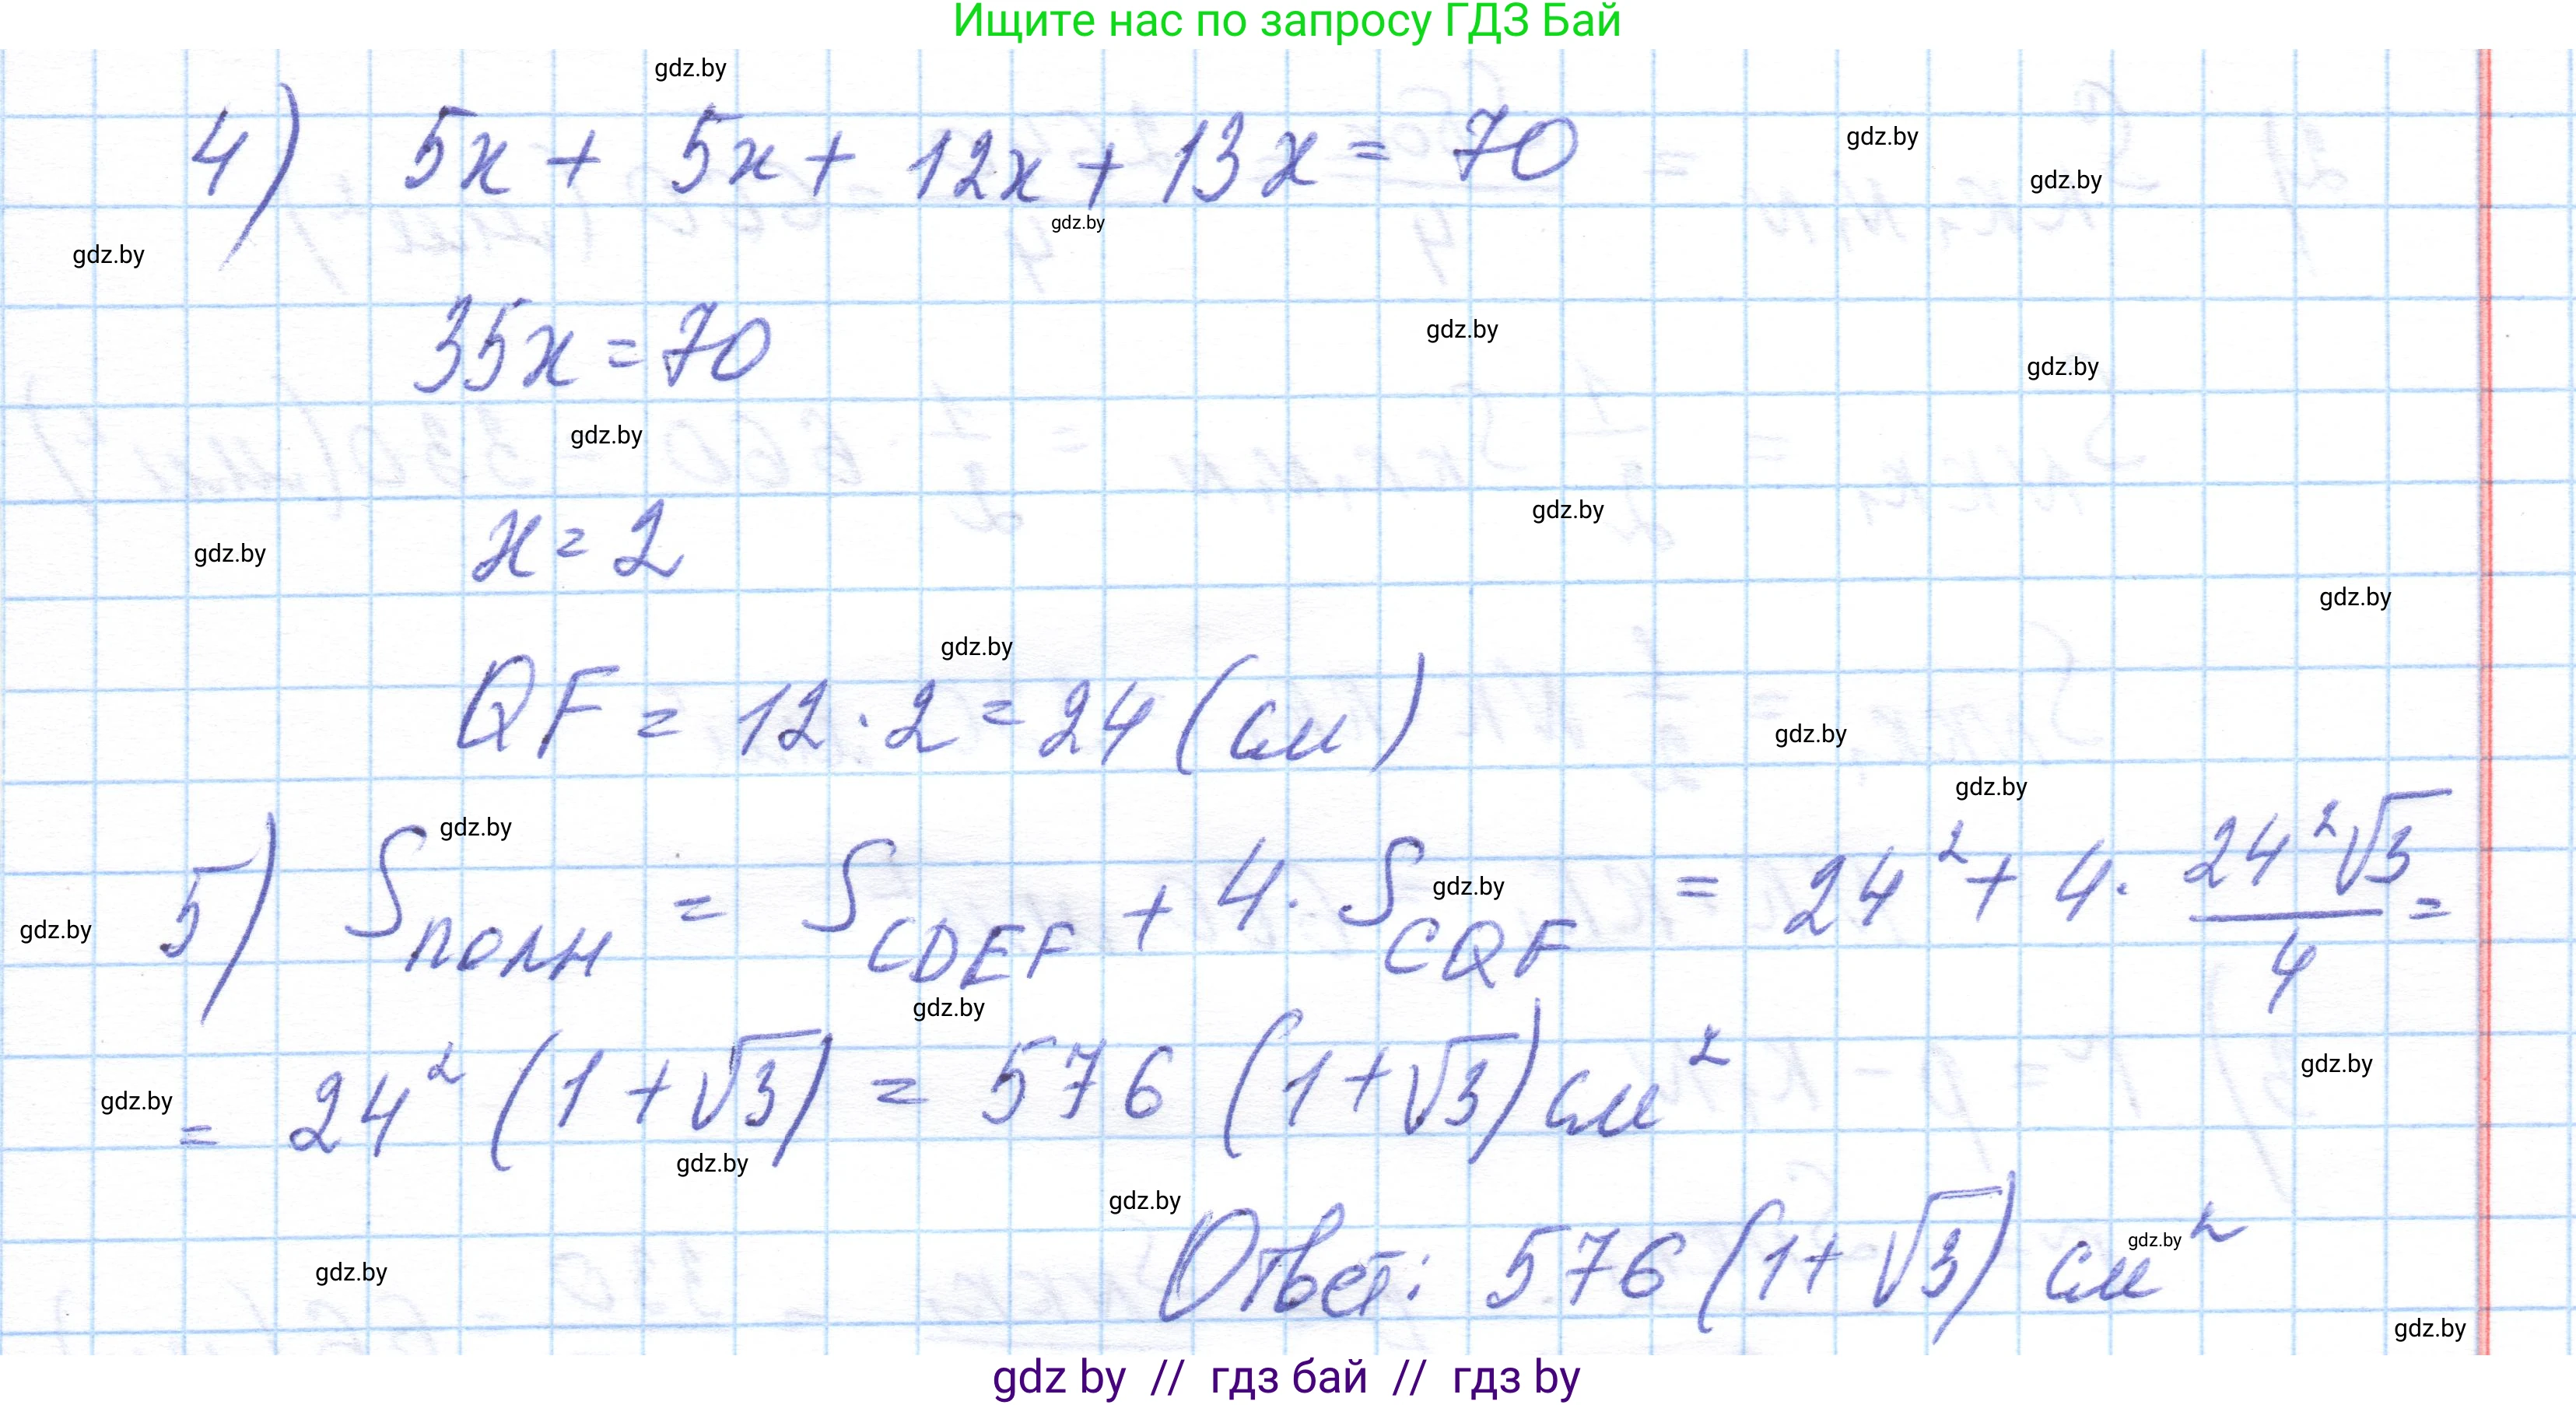 Ищите нас по запросу ГДЗ Бай
gdz.by
4) 5x + 5x + 12x + 13x = 70
gdz.by
gdz.by
gdz.by
gdz.by
35x = 70
gdz.by
gdz.by
gdz.by
x = 2
gdz.by
gdz.by
gdz.by
gdz.by
QF = 12 · 2 = 24 (см)
gdz.by
gdz.by
gdz.by
5) Sполн = SCDEF + 4 · SCQF = 24² + 4 · 24²√3/4 =
gdz.by
gdz.by
gdz.by
= 24² (1 + √3) = 576 (1 + √3) см²
gdz.by
gdz.by
gdz.by
gdz.by
Ответ: 576 (1 + √3) см²
gdz.by
gdz.by
gdz.by
gdz by // гдз бай // гдз by